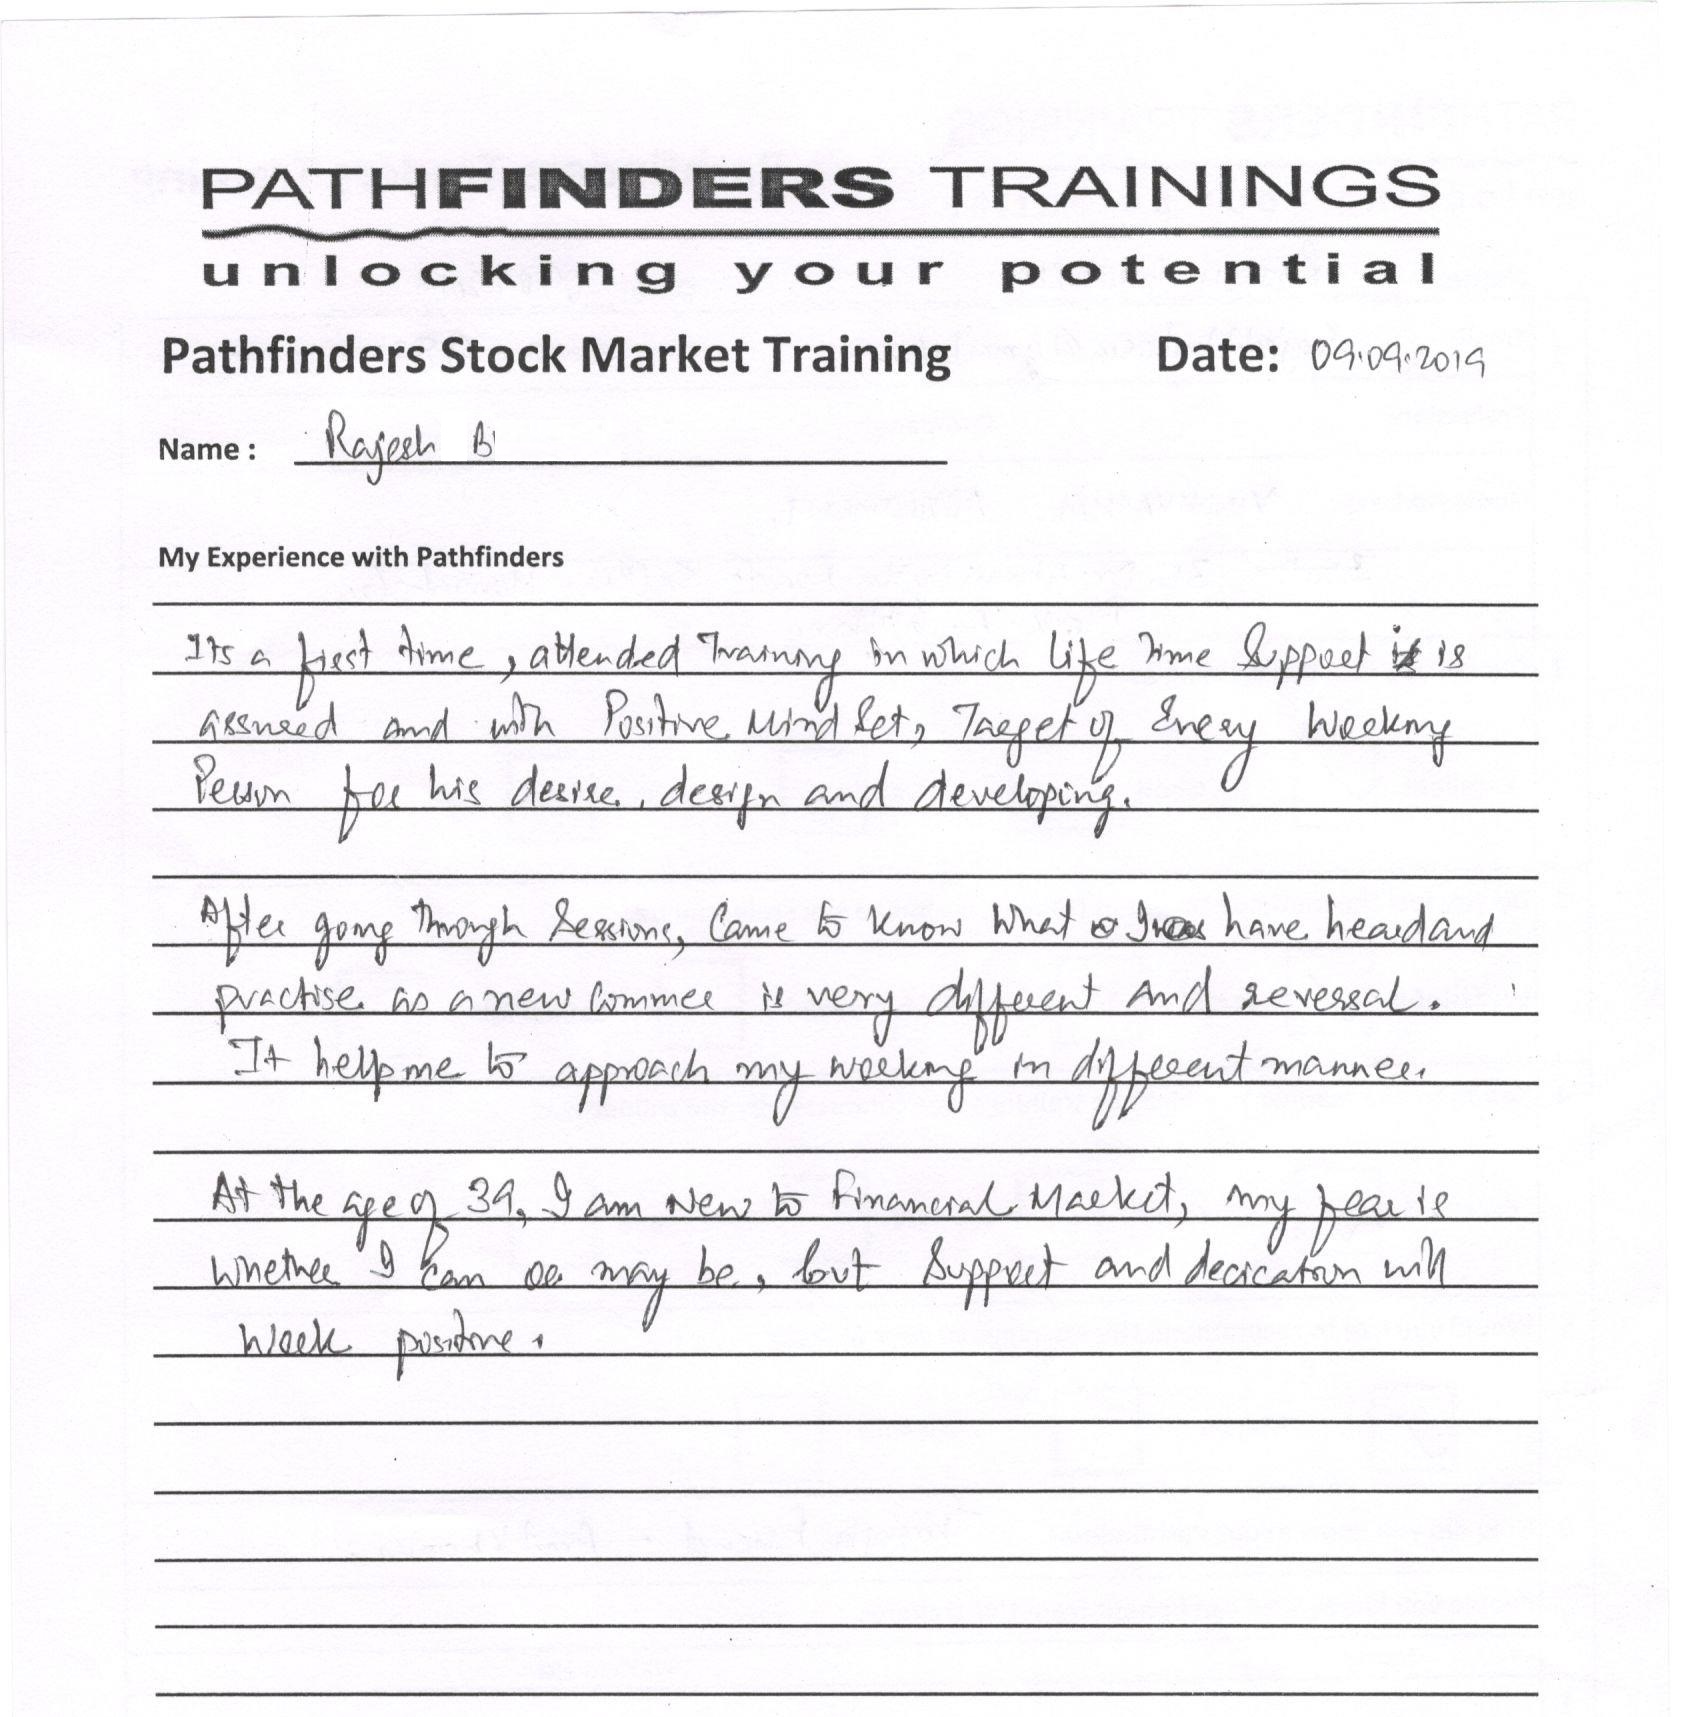 PATHFINDERS TRAININGS
unlocking your potential
Pathfinders Stock Market Training Date: 09.09.2019
Name : Rajesh B
My Experience with Pathfinders
Its a first time, attended Training in which life time Support is
assured and with Positive Mind Set, Target of Every Working
Person for his desire, design and developing.
After going through Sessions, Came to know What I have heard and
practise as a new Commer is very different and reversal.
It help me to approach my working in different manner.
At the age of 39, I am New to Financial Market, my fear is
Whether I can or may be, but Support and decication will
Work positive.